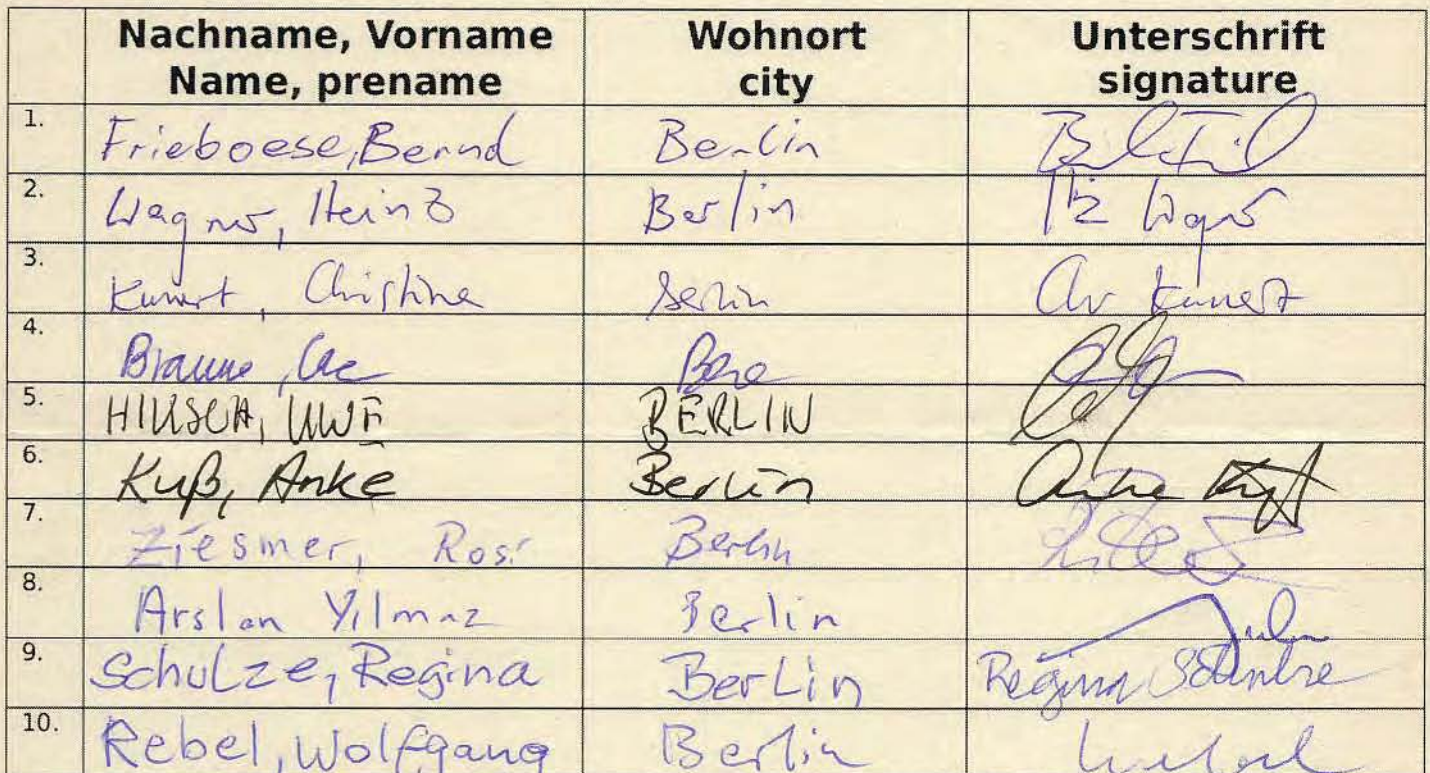 Nachname, Vorname Wohnort Unterschrift
Name, prename city signature
1. Frieboese, Bernd Berlin
2. Wagner, Heinz Berlin Hz Wagner
3. Kunert, Christine Berlin Chr Kunert
4. Braune, Berlin
5. HINSCH, UWE BERLIN
6. Kuß, Anke Berlin Anke Kuß
7. Ziesmer, Rosi Berlin
8. Arslan Yilmaz Berlin
9. Schulze, Regina Berlin Regina Schulze
10. Rebel, Wolfgang Berlin